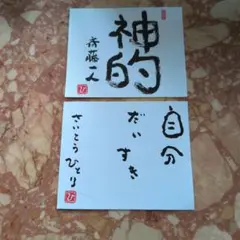 神的
斉藤一人
自分
だいすき
さいとうひとり